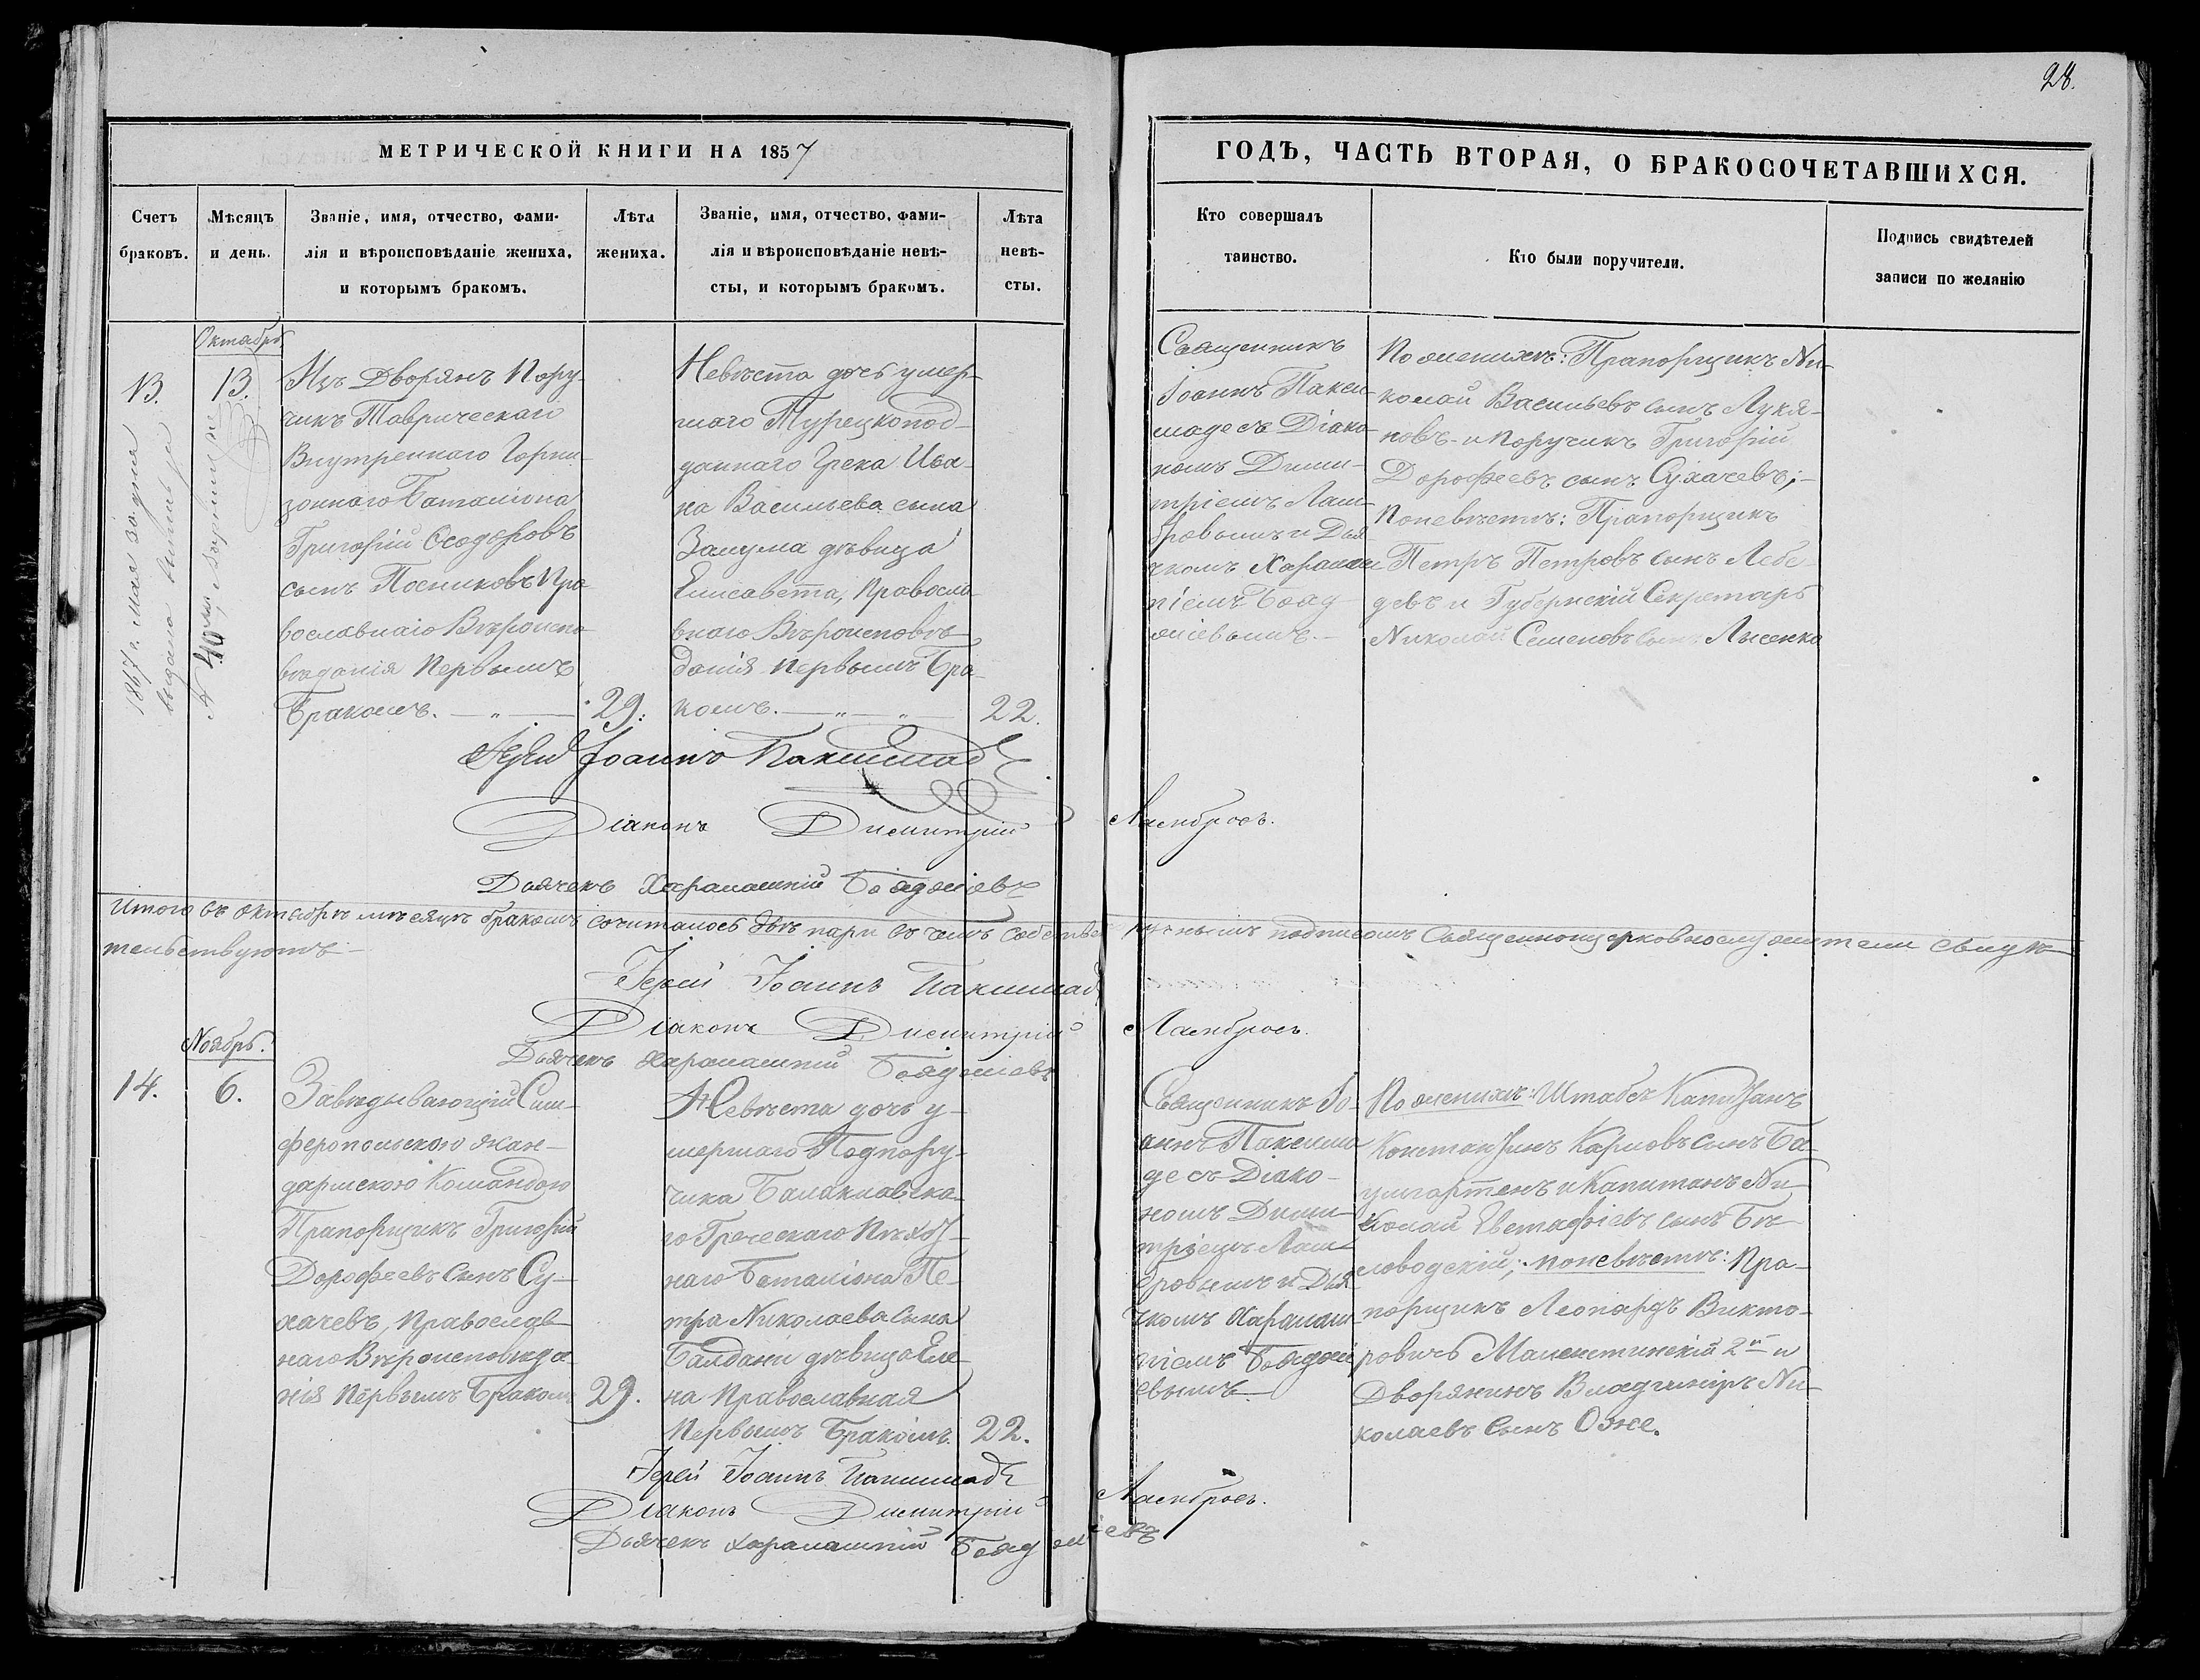 28.
МЕТРИЧЕСКОЙ КНИГИ НА 1857
ГОДЪ, ЧАСТЬ ВТОРАЯ, О БРАКОСОЧЕТАВШИХСЯ.
Счетъ
браковъ.
Мѣсяцъ
и день.
Званіе, имя, отчество, фами-
лія и вѣроисповѣданіе жениха,
и которымъ бракомъ.
Лѣта
жениха.
Званіе, имя, отчество, фами-
лія и вѣроисповѣданіе невѣ-
сты, и которымъ бракомъ.
Лѣта
невѣ-
сты.
Кто совершалъ
таинство.
Кто были поручители.
Подпись свидѣтелей
записи по желанію
Октябрь
13.
13.
1867 г. Мая 30 дня
выдано
№ 40
Изъ Дворянъ Пору-
чикъ Таврическаго
Внутренняго Горни-
зоннаго Баталіона
Григорій Ѳеодоровъ
сынъ Посниковъ Пра-
вославнаго Вѣроиспо-
вѣданія Первымъ
Бракомъ. — „ —
29.
Невѣста дочь умер-
шаго Турецкопод-
даннаго Грека Ива-
на Васильева сына
Зацума дѣвица
Елисавета, Православ-
внаго Вѣроисповѣ-
данія Первымъ Бра-
комъ. — „ — „ —
22.
Священникъ
Іоаннъ Пакси-
маде съ Діако-
номъ Дими-
тріемъ Лам-
бровымъ и Дья-
чкомъ Харалам-
піемъ Бояд-
жіевымъ. —
По женихѣ: Прапорщикъ Ни-
колай Васильевъ сынъ Лукя-
новъ - и Поручикъ Григорій
Дорофеевъ сынъ Сухачевъ; —
По невѣстѣ: Прапорщикъ
Петръ Петровъ сынъ Лебе-
девъ и Губернскій Секретарь
Николай Семеновъ сынъ Лысенко
Іерей Іоаннъ Паксимаде
Діаконъ Димитрій Ламбровъ.
Дьячекъ Харалампій Бояджіевъ
Итого въ октябрѣ мѣсяцѣ бракомъ сочиталось двѣ пары въ чемъ собственноручнымъ подписомъ Священноцерковнослужители свидѣ-
тельствуютъ —
Іерей Іоаннъ Паксимаде
Діаконъ Димитрій Ламбровъ.
Дьячекъ Харалампій Бояджіевъ
Ноябрь.
14.
6.
Завѣдывающій Сим-
феропольскою жан-
дармскою Командою
Прапорщикъ Григорій
Дорофеевъ сынъ Су-
хачевъ, Православ-
наго Вѣроисповѣда-
нія Первымъ Бракомъ
29.
Невѣста дочь у-
мершаго Подпору-
чика Балаклавска-
го Греческаго Пѣхот-
наго Баталіона Пе-
тра Николаева сына
Балдани дѣвица Еле-
на Православная
Первымъ Бракомъ.
22.
Священникъ Іо-
аннъ Паксима-
де съ Діако-
номъ Дими-
тріемъ Лам-
бровымъ и Дья-
чкомъ Харалам-
піемъ Бояджі-
евымъ —
По женихѣ: Штабсъ Капитанъ
Константинъ Карловъ сынъ Ба-
умгартенъ и Капитанъ Ни-
колай Евстафіевъ сынъ Бѣ-
ловодскій; по невѣстѣ: Пра-
порщикъ Леопардъ Викто-
ровичъ 2й и
Дворянинъ Владиміръ Ни-
колаевъ сынъ Оже.
Іерей Іоаннъ Паксимаде
Діаконъ Димитрій Ламбровъ.
Дьячекъ Харалампій Бояджіевъ